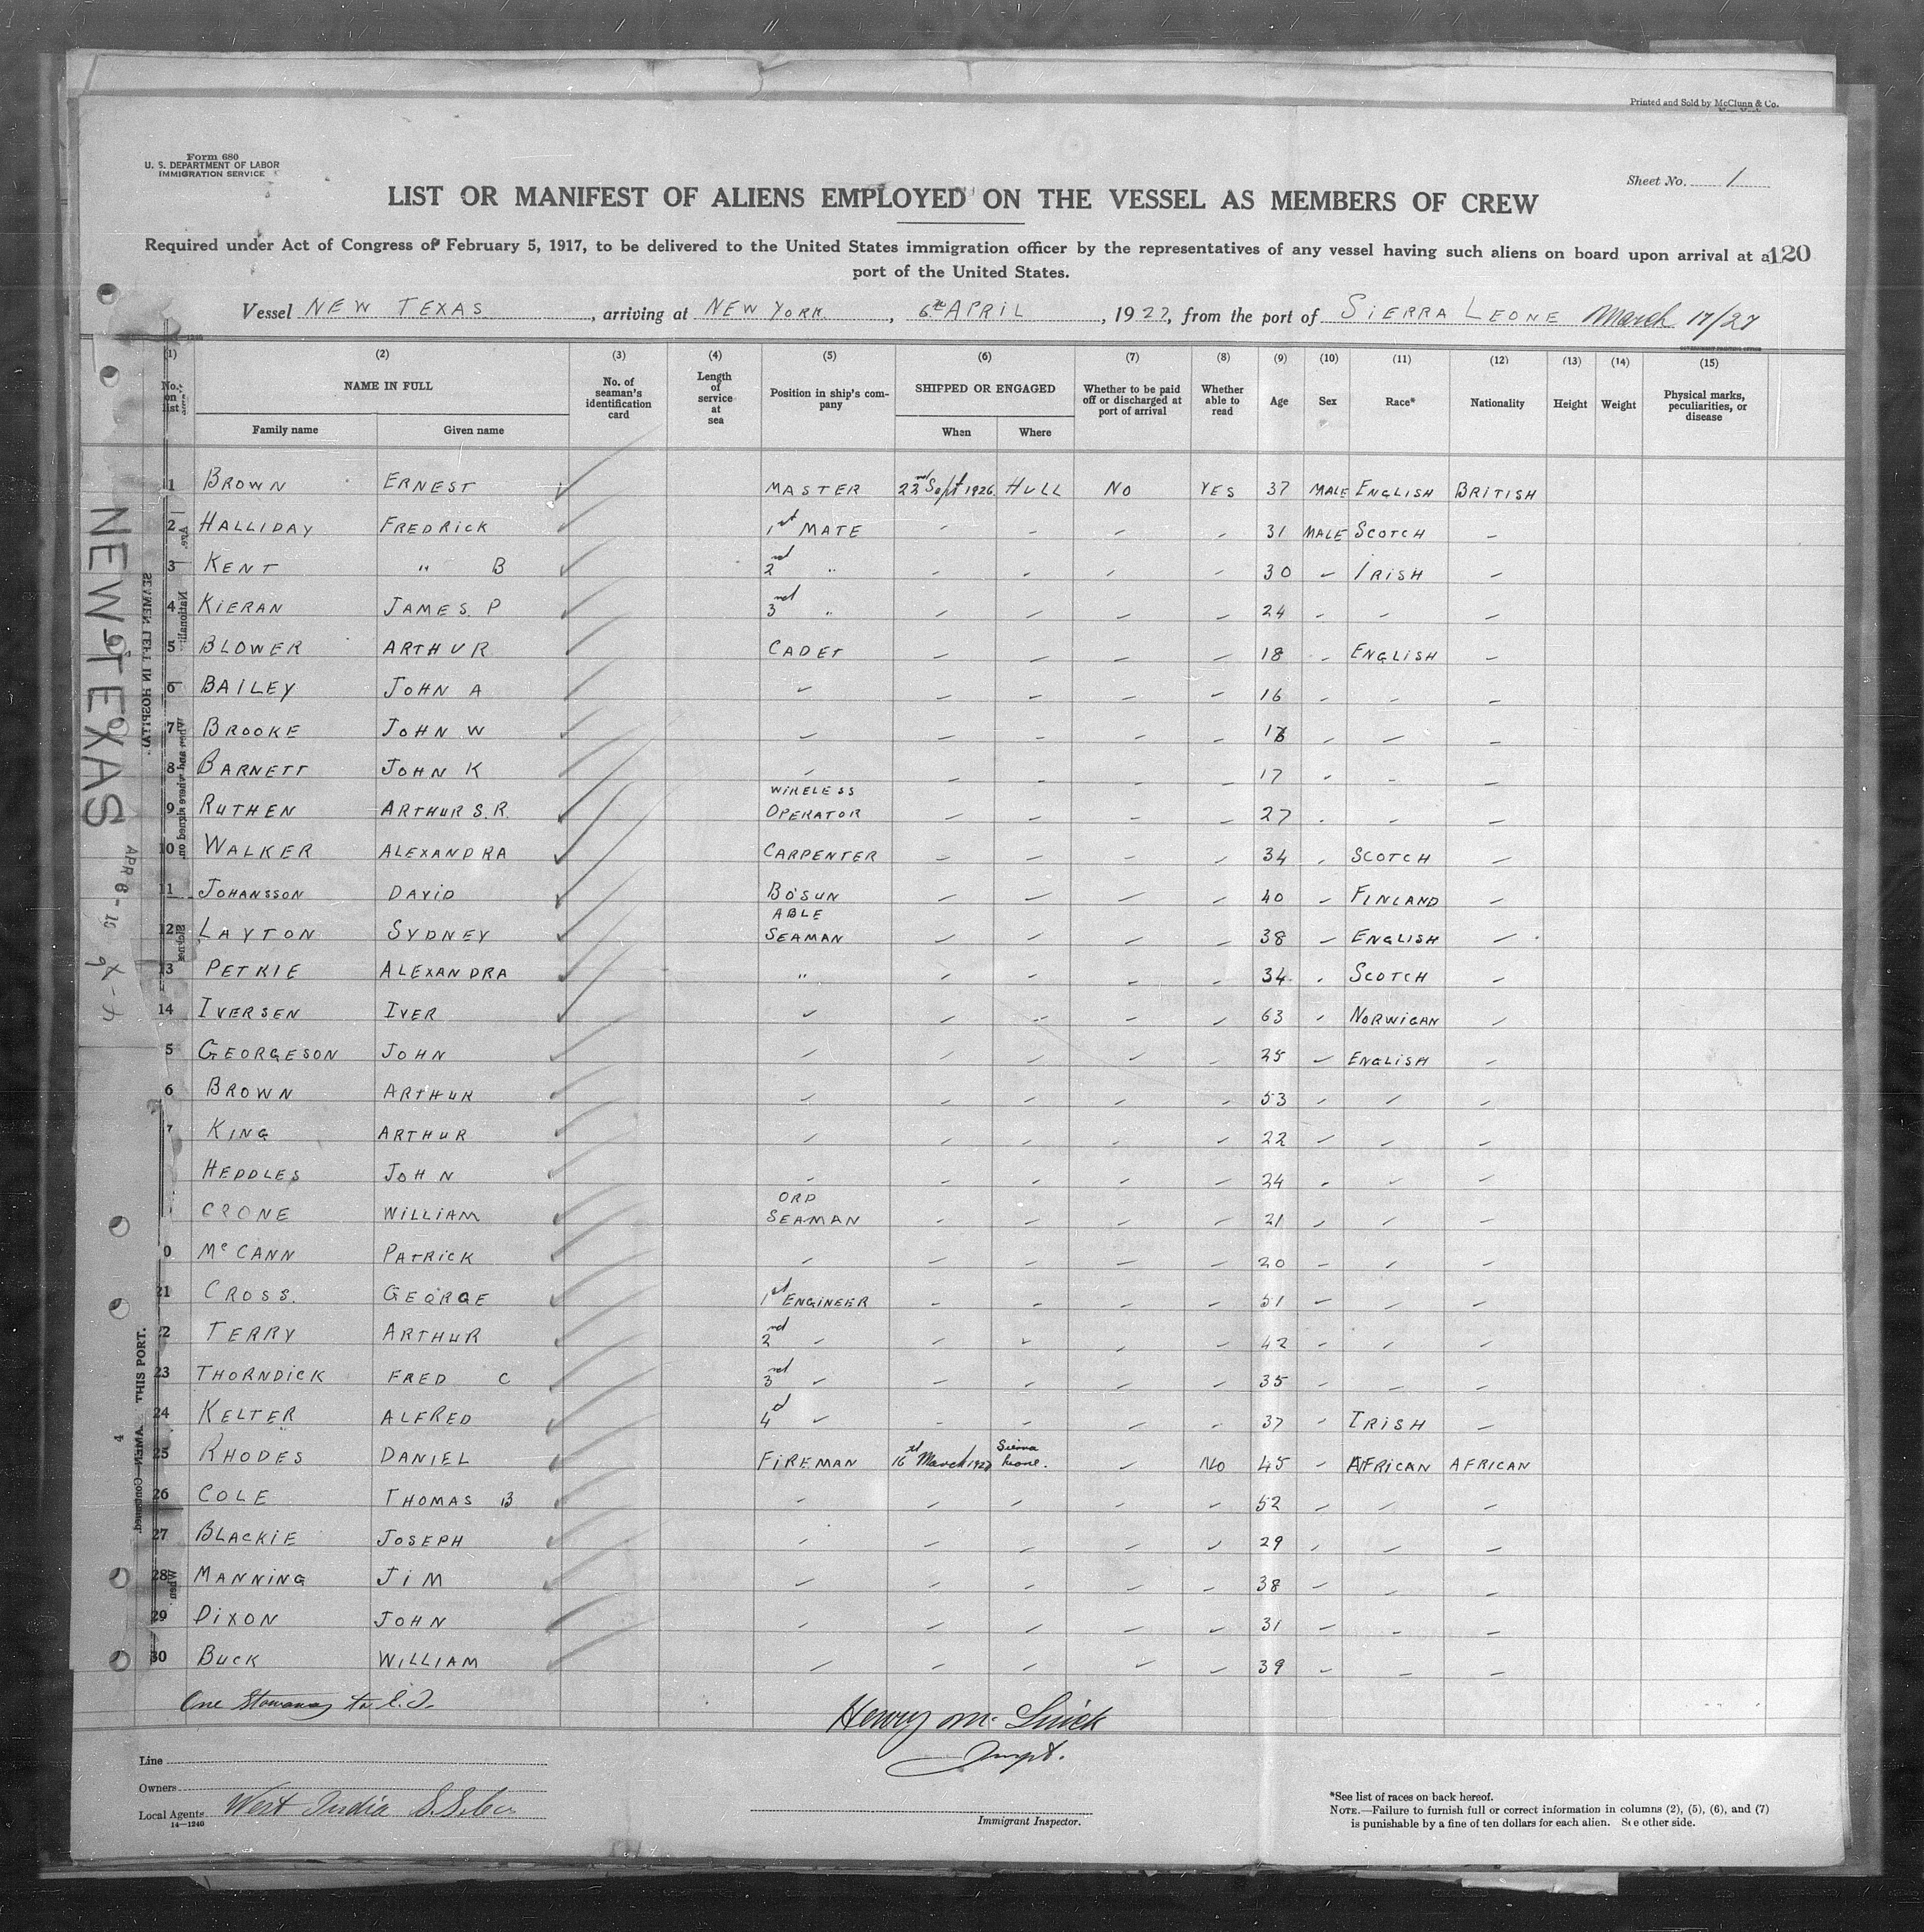 Printed and Sold by McClunn & Co.
Form 680
U. S. DEPARTMENT OF LABOR
IMMIGRATION SERVICE
Sheet No. 1
LIST OR MANIFEST OF ALIENS EMPLOYED ON THE VESSEL AS MEMBERS OF CREW
Required under Act of Congress of February 5, 1917, to be delivered to the United States immigration officer by the representatives of any vessel having such aliens on board upon arrival at a 120
port of the United States.
Vessel NEW TEXAS, arriving at NEW YORK, 6th APRIL, 1927, from the port of SIERRA LEONE March 17/27
(1) (2) (3) (4) (5) (6) (7) (8) (9) (10) (11) (12) (13) (14) (15)
No. on list NAME IN FULL No. of seaman's identification card Length of service at sea Position in ship's company SHIPPED OR ENGAGED Whether to be paid off or discharged at port of arrival Whether able to read Age Sex Race* Nationality Height Weight Physical marks, peculiarities, or disease
Family name Given name When Where
1 BROWN ERNEST MASTER 22nd Sept 1926 HULL NO YES 37 MALE ENGLISH BRITISH
2 HALLIDAY FREDRICK 1st MATE - - - - 31 MALE SCOTCH -
3 KENT " B 2nd " - - - - 30 - IRISH -
4 KIERAN JAMES. P 3rd " - - - - 24 - - -
5 BLOWER ARTHUR CADET - - - - 18 - ENGLISH -
6 BAILEY JOHN A - - - - - 16 - - -
7 BROOKE JOHN W - - - - - - - -
8 BARNETT JOHN K - - - - - 17 - - -
9 RUTHEN ARTHUR S.R. WIRELESS OPERATOR - - - - 27 - - -
10 WALKER ALEXANDRA CARPENTER - - - - 34 - SCOTCH -
11 JOHANSSON DAVID BO'SUN - - - - 40 - FINLAND -
12 LAYTON SYDNEY ABLE SEAMAN - - - - 38 - ENGLISH -
13 PETKIE ALEXANDRA " - - - - 34 - SCOTCH -
14 IVERSEN IVER - - - - - 63 - NORWIGAN -
5 GEORGESON JOHN - - - - - 25 - ENGLISH -
6 BROWN ARTHUR - - - - - 53 - - -
7 KING ARTHUR - - - - - 22 - - -
HEDDLES JOHN - - - - - 24 - - -
CRONE WILLIAM ORD SEAMAN - - - - 21 - - -
0 McCANN PATRICK - - - - - 20 - - -
21 CROSS. GEORGE 1st ENGINEER - - - - 51 - - -
2 TERRY ARTHUR 2nd - - - - - 42 - - -
23 THORNDICK FRED C 3rd - - - - - 35 - - -
24 KELTER ALFRED 4th - - - - - 37 - IRISH -
25 RHODES DANIEL FIREMAN 16th March 1927 Sierra Leone. - NO 45 - AFRICAN AFRICAN
26 COLE THOMAS B - - - - - 52 - - -
27 BLACKIE JOSEPH - - - - - 29 - - -
28 MANNING JIM - - - - - 38 - - -
29 DIXON JOHN - - - - - 31 - - -
30 BUCK WILLIAM - - - - - 39 - - -
One Stowaway to
Henry
Line
Owners
Local Agents West India S.S. Co
14—1240
Immigrant Inspector.
*See list of races on back hereof.
NOTE.—Failure to furnish full or correct information in columns (2), (5), (6), and (7)
is punishable by a fine of ten dollars for each alien. See other side.
NEW TEXAS
SEAMEN LEFT IN HOSPITAL
THIS PORT.